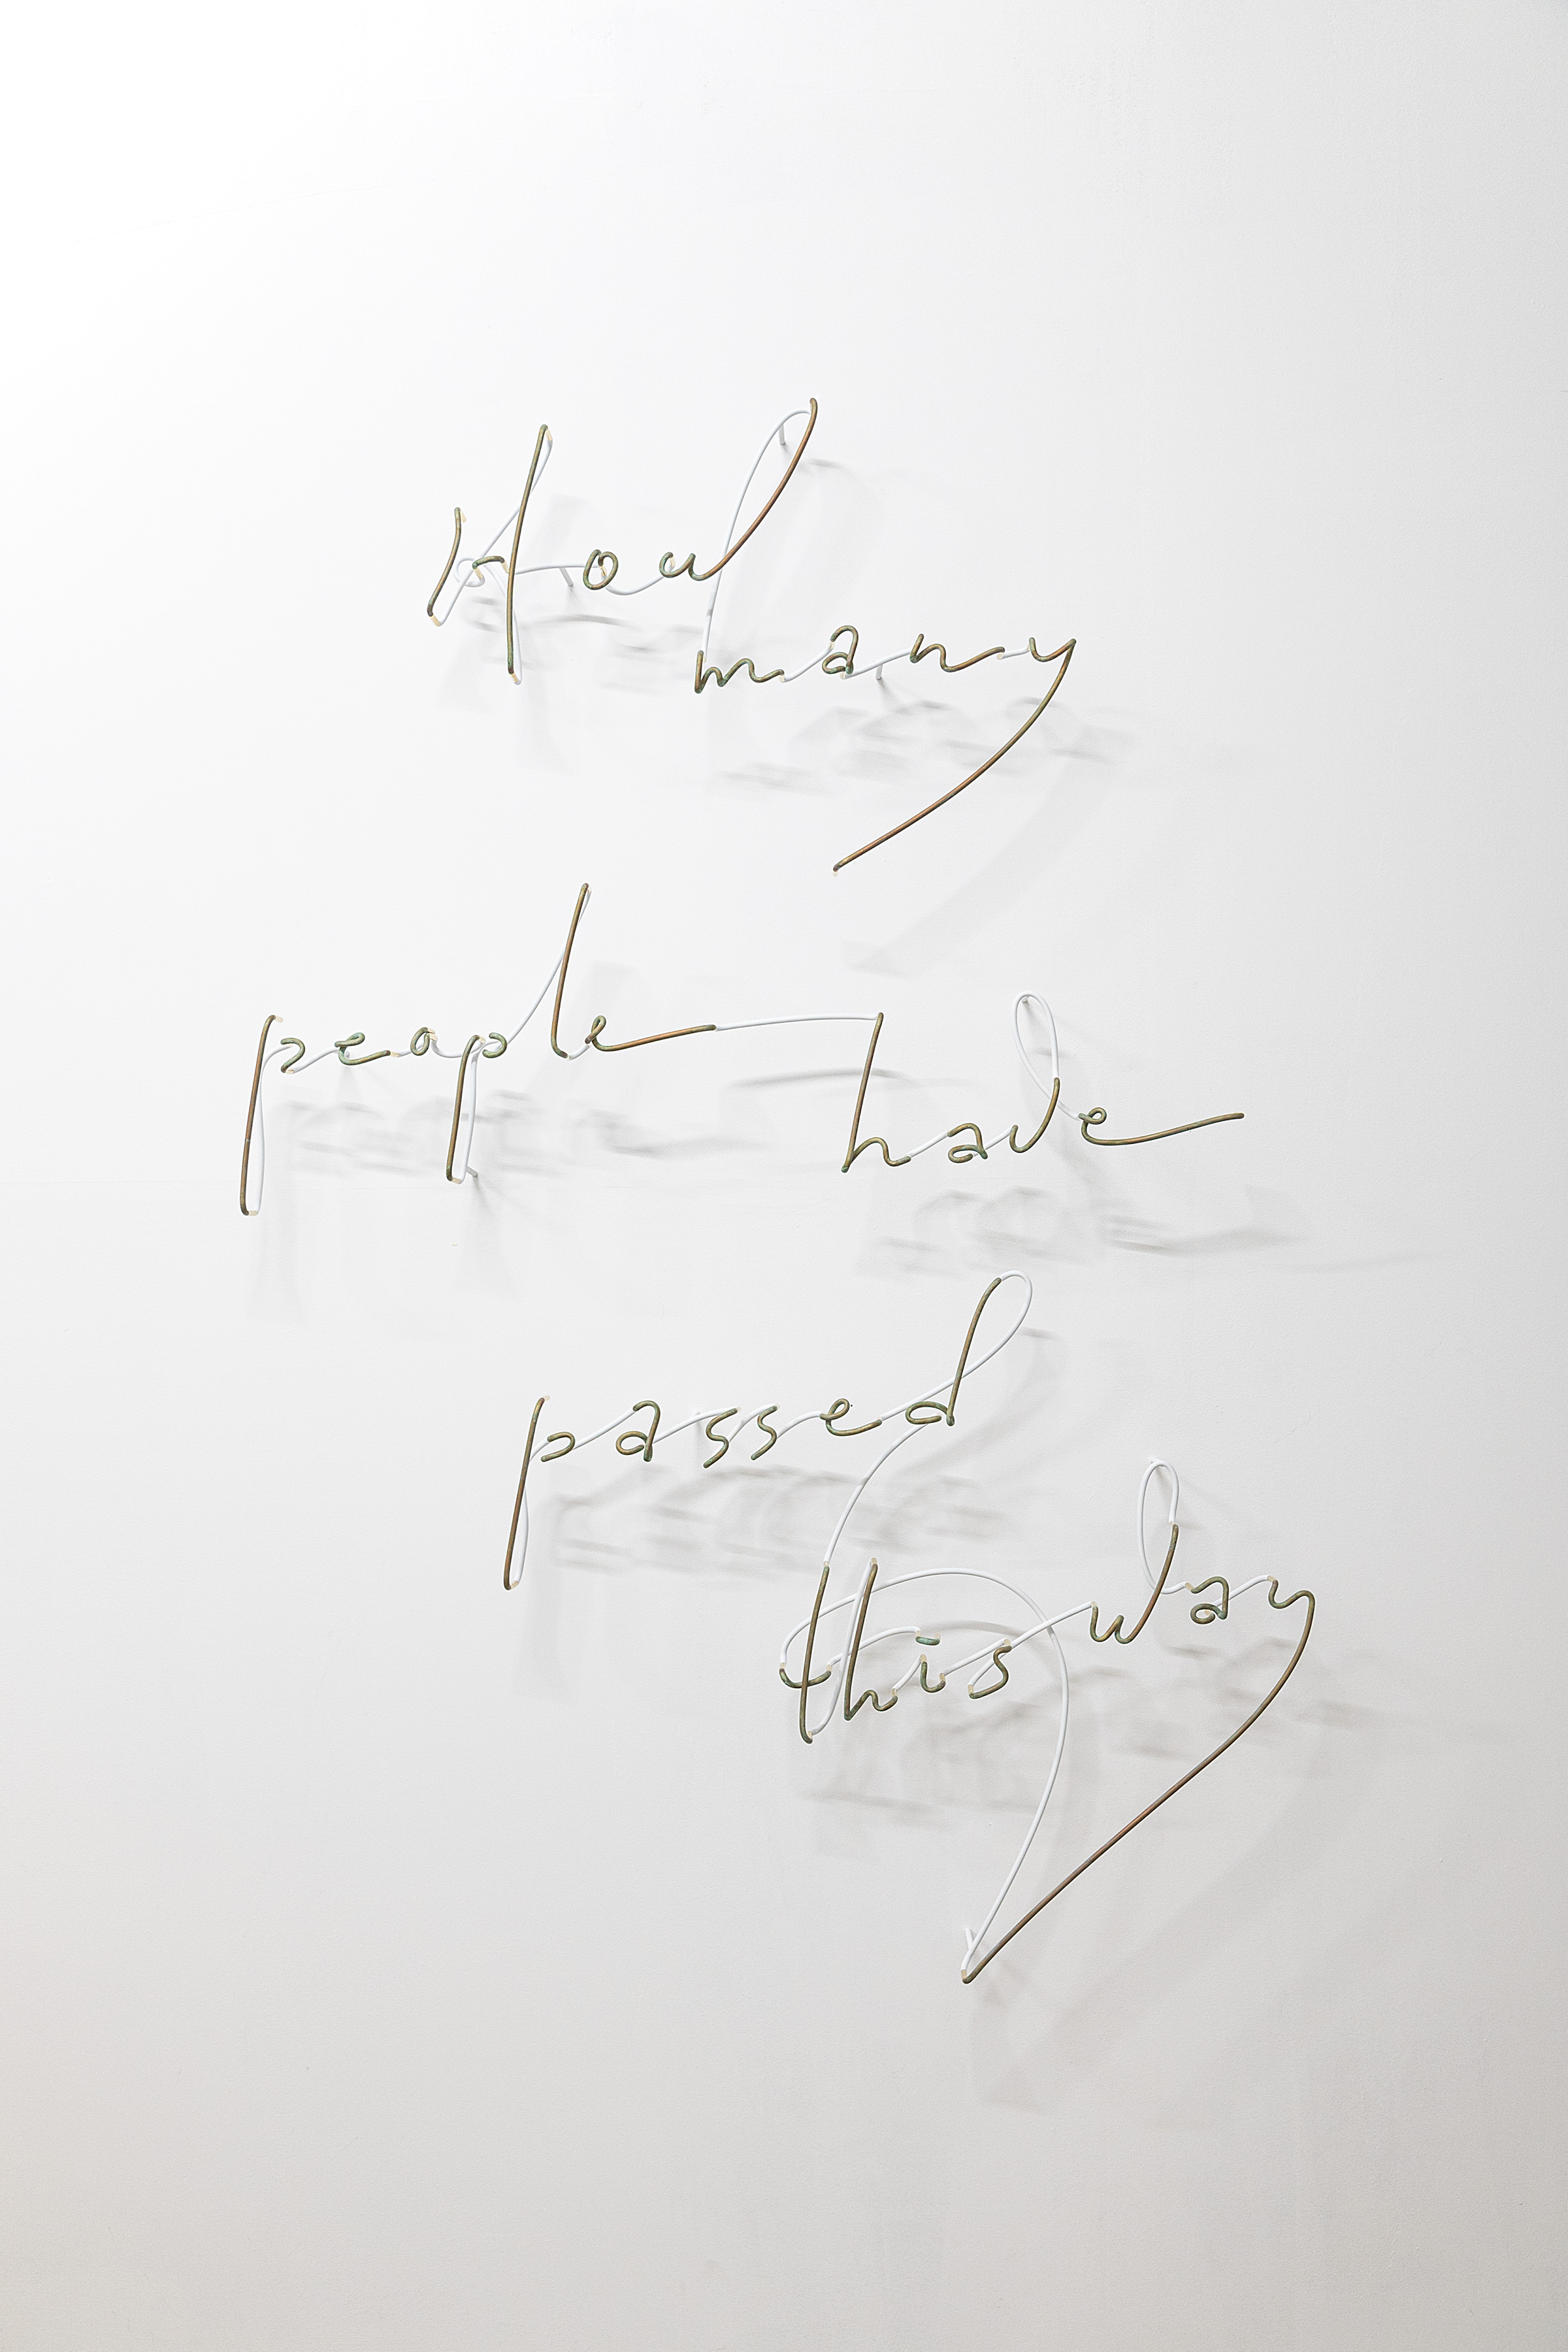 How
many
people
have
passed
this way